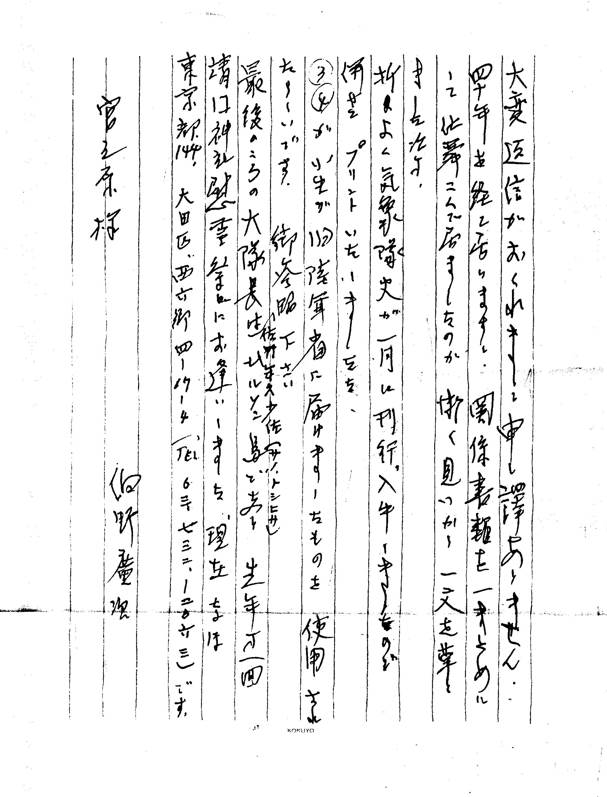 大変返信がおくれまして申し譯ありません.
四十年を経て居りますし、関係書類を一まとめに
して仕舞こんで居ましたのが 漸く見つかり 一文を草し
ました次第.
折りよく気象隊史が一月に刊行、入手しましたので
併せ プリントいたしました、
③④が小生が旧陸軍省に届けましたものを 使用され
たらしいです. 御参照下さい
(佐野 少佐(サノトシヒサ)
最後のころの大隊長は、比ルソン島であり 生年 一回
靖国神社慰霊祭にお逢いしました、現在 なほ
東京都144. 大田区、西六郷四ー17ー4 (TEL 03-七三二-二〇六三)です.
野廣
宮之原様
KOKUYO